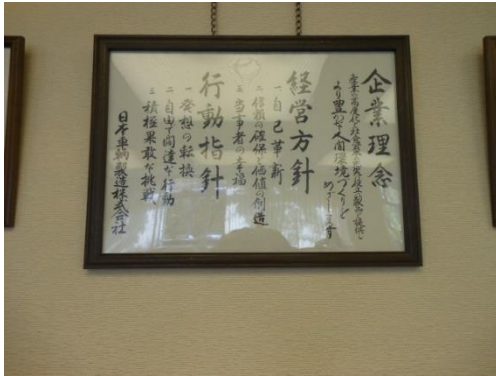 企業理念
産業の高度化と社会発展に
より豊かな人間環境づくりを
めざします
経営方針
一 自己革新
二 信頼の確保と価値の創造
三 当事者の幸福
行動指針
一 発想の転換
二 自由で闊達な行動
三 積極果敢な挑戦
日本車輌製造株式会社